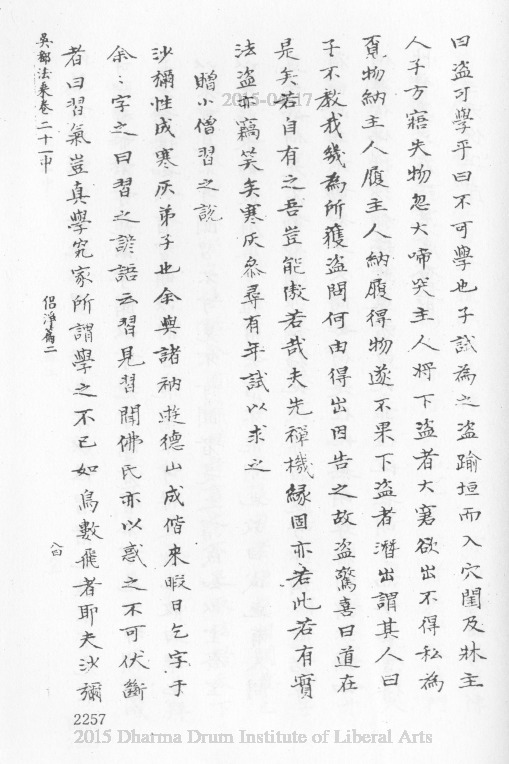 曰盗可學乎曰不可學也子試為之盗踰垣而入穴閨及牀主
人子方寤失物忽大啼哭主人將下盗者大窘欲出不得私為
頁物納主人履主人納履得物遂不果下盗者潛出謂其人曰
子不教我幾為所獲盗問何由得出因告之故盗驚喜曰道在
是矣若自有之吾豈能傲若哉夫先禪機縁固亦若此若有實
法盗亦竊笑矣寒灰叅尋有年試以求之
贈小僧習之說
沙彌性成寒灰弟子也余與諸衲遊德山成偕来暇日乞字于
余：字之曰習之諺語云習見習聞佛氏亦以惑之不可伏斷
者曰習氣豈真學究家所謂學之不已如鳥數飛者耶夫沙彌
吳都法乗卷二十一中
侣淨篇二
八四
2257
2015-04-17
2015 Dharma Drum Institute of Liberal Arts